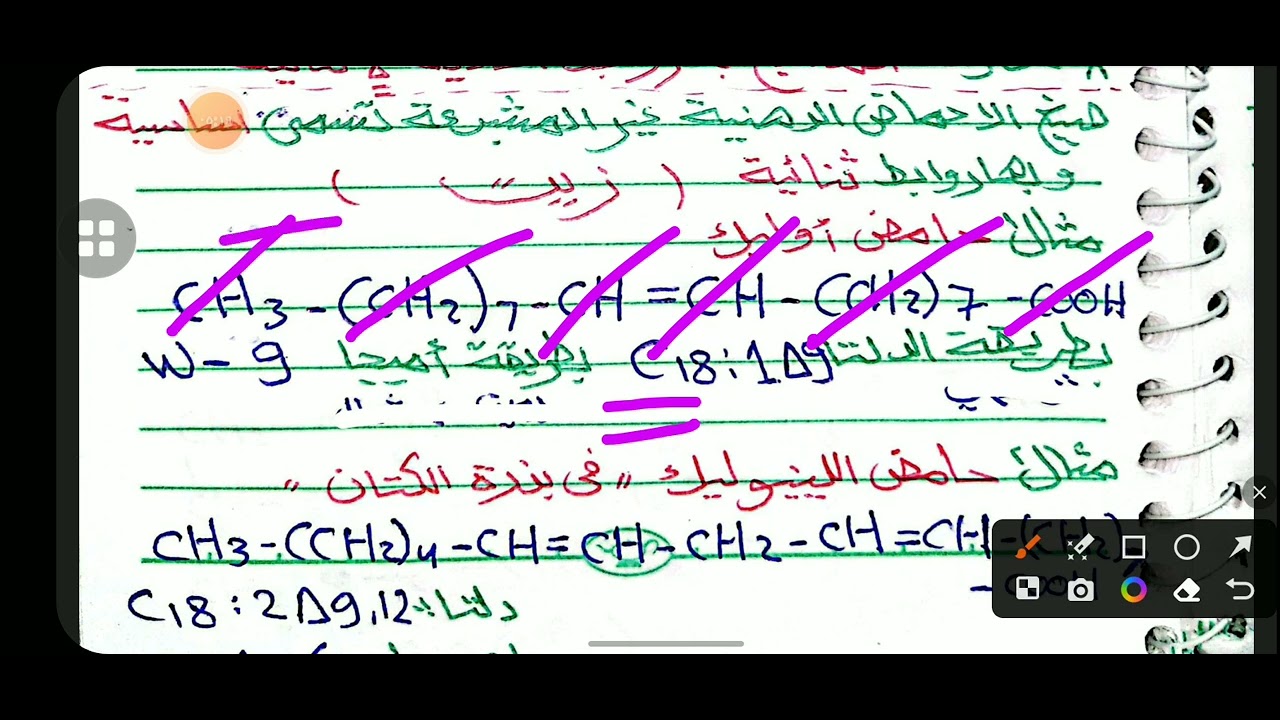 صيغ الاحماض الدهنية غير المشبعة تسمى أساسية
وبها روابط ثنائية ( زيت )
مثال حامض أوليك
CH3-(CH2)7-CH=CH-(CH2)7-COOH
بطريقة الدلتا C18:1Δ9 بطريقة أميجا W-9
مثال حامض اللينوليك "فى بذرة الكتان"
CH3-(CH2)4-CH=CH-CH2-CH=CH-(CH2)
-COOH
دلتا: C18:2Δ9,12